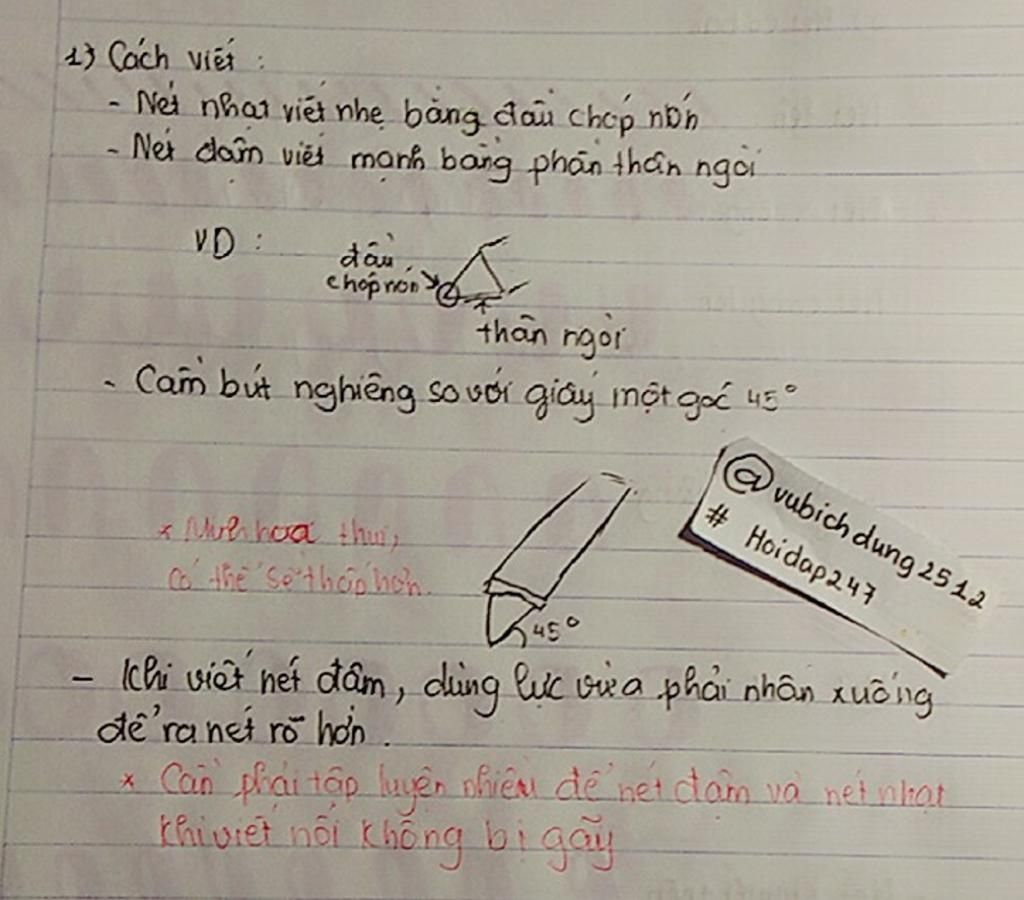 1) Cách viết :
- Nét nhạt viết nhẹ bằng đầu chóp nón
- Nét đậm viết mạnh bằng phần thân ngòi
VD :
đầu
chóp nón
thân ngòi
- Cầm bút nghiêng so với giấy một góc 45°
* Minh hoạ thui,
có thể sẽ thấp hơn.
45°
@vubichdung2512
# Hoidap247
- Khi viết nét đậm, dùng lực vừa phải nhấn xuống
để ra nét rõ hơn.
* Cần phải tập luyện nhiều để nét đậm và nét nhạt
khi viết nối không bị gãy